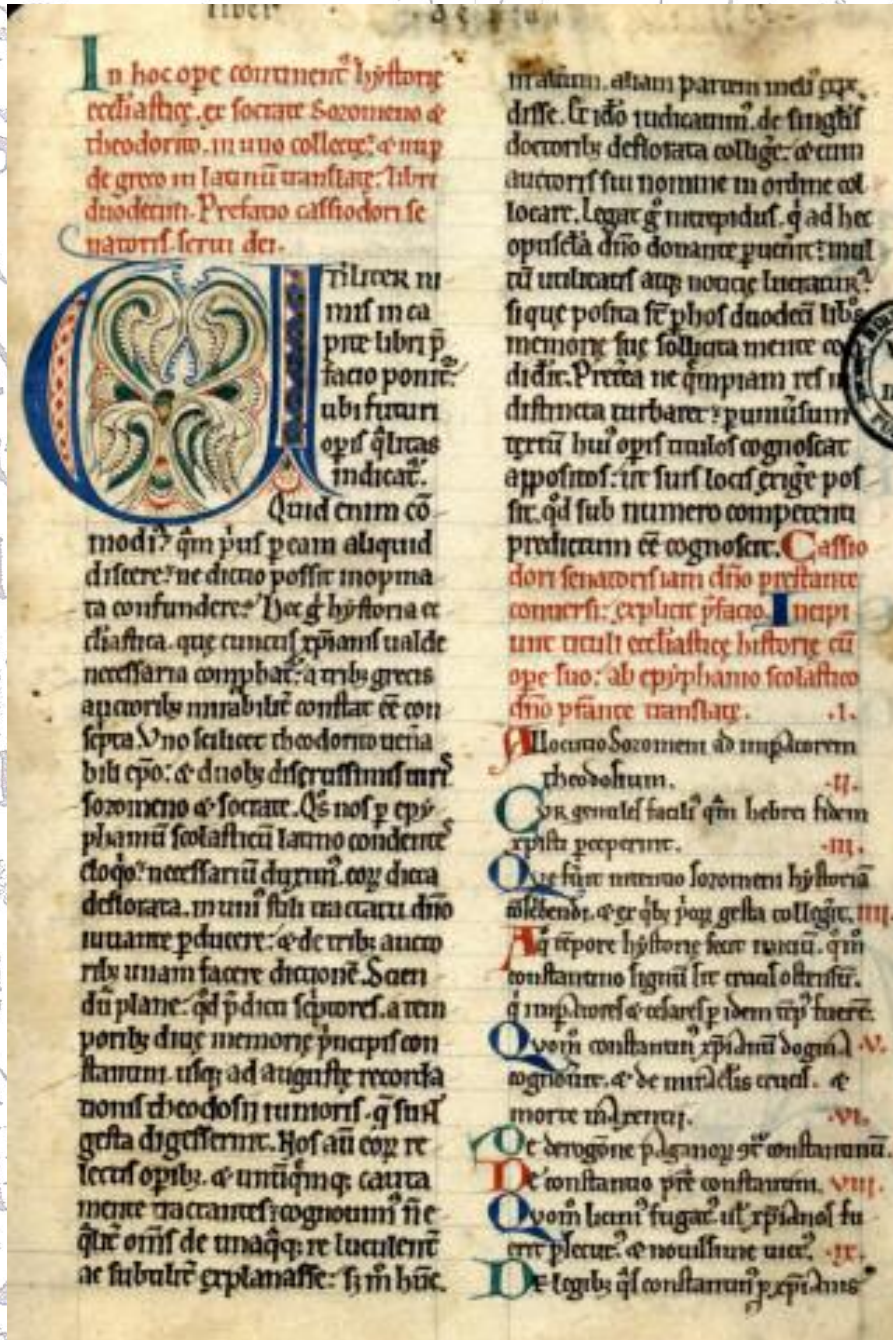 In hoc ope continent hystorie
eccliastice. ex socrate Sozomeno &
theodorito. in uno collecte. & nup
de greco in latinu translate. libri
duodecim. Prefatio cassiodori se
natoris. serui dei.
UTILITER ni
mis in ca
pite libri p
facio ponit.
ubi futuri
opis qlitas
indicat.
Quid enim co
modi? qm pus p eam aliquid
discere. ne dictio possit inopina
ta confundere. Hec g hystoria ec
cliastica. que cunctis xpianis ualde
necessaria comphat. a trib; grecis
auctorib; mirabilit constat ee con
scpta. Vno scilicet theodorito uena
bili epo. & duob; disertissimis uiris
sozomeno & socrate. Qs nos p epy
phaniu scolasticu latino condentes
eloqo. necessariu duxim. eor dicta
deflorata. in uni stili tractatu dno
iuuante pducere. & de trib; aucto
rib; unam facere dictione. Scien
du plane. qd pdicti scptores. a tem
porib; diue memorie pncipis con
stantini. usq; ad auguste recorda
tionis theodosii iunioris. q sunt
gesta digesserint. Nos au eor re
lectis opib;. & unuqmq; cauta
mente tractantes. cognouim n e
qlit oms de unaqq; re luculent
ac subtilit explanasse. s; m hunc.
in aliam. aliam partem meli exp
disse. Et ido iudicauim. de singlis
doctorib; deflorata collige. & cum
auctoris sui nomine in ordine col
locare. Legat g intrepidus. q ad hec
opuscla dno donante puenit. mul
tu utilitatis atq; noticie lucratur.
sique posita st phos duodeci libs
memorie sue sollicita mente co
didit. Preta ne qmpiam res in
distincta turbaret. p uniusum
textu hui opis titulos cognoscat
appositos. ut suis locis exige pos
sit. qd sub numero competenti
predictum ee cognoscit. Cassio
dori senatoris iam dno prestante
conuersi. explicit pfacio. Incipi
unt tituli eccliastice historie cu
ope suo. ab epyphanio scolastico
dno pstante translate. .I.
Allocutio Sozomeni ad impatorem
theodosium. .II.
CVR gentiles facili qm hebrei fidem
xpisti pceperint. .III.
Que fuit intentio sozomeni hystoria
& ex qb; gesta collegit. IIII.
A q tepore hystorie fecit iniciu. qm
constantino signu sce crucis ostensu.
q impatores & cesares p idem tep fuere.
Quom constantin xpianu dogma .V.
cognouit. & de miraclis crucis. &
morte maxentii. .VI.
De derogone paganor constantinu.
De constantio pre constantini. VIII.
Quom licini fugat ul xpianos fu
erit psecut. & nouissime uict. .IX.
De legib; qs constantin p xpianis